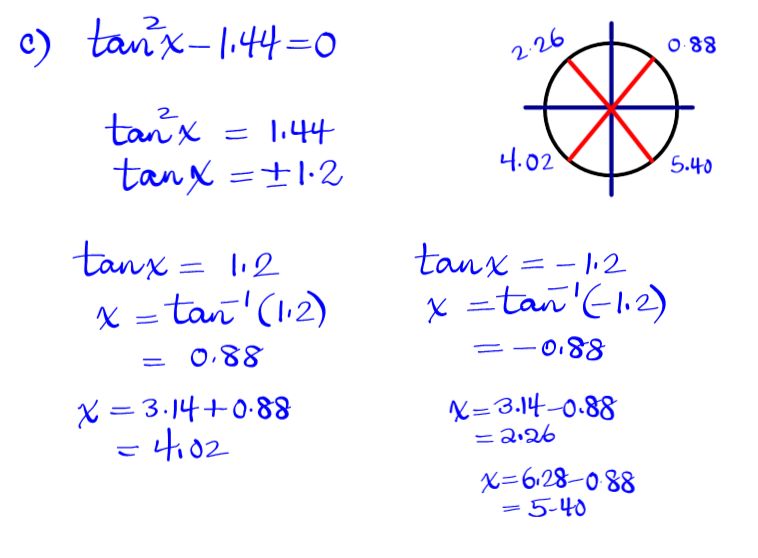 c) tan²x - 1.44 = 0
tan²x = 1.44
tanx = ±1.2
2.26
0.88
4.02
5.40
tanx = 1.2
x = tan⁻¹(1.2)
= 0.88
x = 3.14 + 0.88
= 4.02
tanx = -1.2
x = tan⁻¹(-1.2)
= -0.88
x = 3.14 - 0.88
= 2.26
x = 6.28 - 0.88
= 5.40